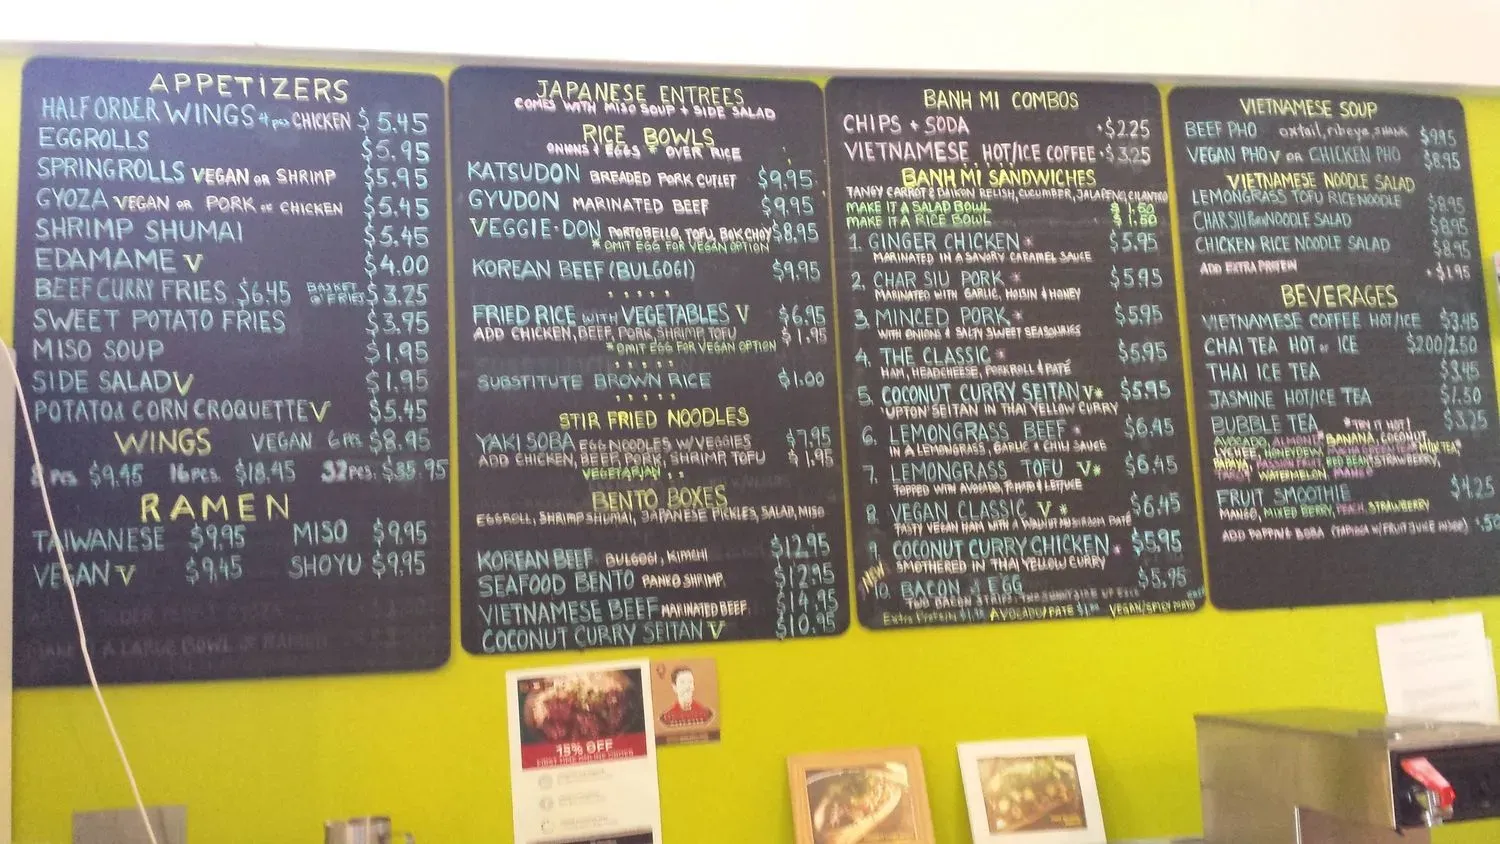 APPETIZERS
HALF ORDER WINGS 4 pcs CHICKEN $5.45
EGGROLLS $5.95
SPRINGROLLS VEGAN OR SHRIMP $5.95
GYOZA VEGAN OR PORK OR CHICKEN $5.45
SHRIMP SHUMAI $5.45
EDAMAME V $4.00
BEEF CURRY FRIES $6.45 BASKET OF FRIES $3.25
SWEET POTATO FRIES $3.95
MISO SOUP $1.95
SIDE SALAD V $1.95
POTATO & CORN CROQUETTE V $5.45
WINGS VEGAN 6 pcs $8.95
8 pcs $9.45 16 pcs. $18.45 32 pcs. $35.95
RAMEN
TAIWANESE $9.95 MISO $9.95
VEGAN V $9.45 SHOYU $9.95
JAPANESE ENTREES
COMES WITH MISO SOUP + SIDE SALAD
RICE BOWLS
ONIONS & EGGS * OVER RICE
KATSUDON BREADED PORK CUTLET $9.95
GYUDON MARINATED BEEF $9.95
VEGGIE-DON PORTOBELLO, TOFU, BOK CHOY $8.95
* OMIT EGG FOR VEGAN OPTION
KOREAN BEEF (BULGOGI) $9.95
FRIED RICE WITH VEGETABLES V $6.95
ADD CHICKEN, BEEF, PORK, SHRIMP, TOFU $1.95
* OMIT EGG FOR VEGAN OPTION
SUBSTITUTE BROWN RICE $1.00
STIR FRIED NOODLES
YAKI SOBA EGG NOODLES W/VEGGIES $7.95
ADD CHICKEN, BEEF, PORK, SHRIMP, TOFU $1.95
VEGETARIAN
BENTO BOXES
EGGROLL, SHRIMP SHUMAI, JAPANESE PICKLES, SALAD, MISO
KOREAN BEEF BULGOGI, KIMCHI $12.95
SEAFOOD BENTO PANKO SHRIMP $12.95
VIETNAMESE BEEF MARINATED BEEF $14.95
COCONUT CURRY SEITAN V $10.95
BANH MI COMBOS
CHIPS + SODA +$2.25
VIETNAMESE HOT/ICE COFFEE +$3.25
BANH MI SANDWICHES
TANGY CARROT & DAIKON RELISH, CUCUMBER, JALAPENO, CILANTRO
MAKE IT A SALAD BOWL $1.50
MAKE IT A RICE BOWL $1.50
1. GINGER CHICKEN * $5.95
MARINATED IN A SAVORY CARAMEL SAUCE
2. CHAR SIU PORK * $5.95
MARINATED WITH GARLIC, HOISIN & HONEY
3. MINCED PORK * $5.95
WITH ONIONS & SALTY SWEET SEASONINGS
4. THE CLASSIC * $5.95
HAM, HEADCHEESE, PORKROLL & PATÉ
5. COCONUT CURRY SEITAN V* $5.95
UPTON SEITAN IN THAI YELLOW CURRY
6. LEMONGRASS BEEF * $6.45
IN A LEMONGRASS, GARLIC & CHILI SAUCE
7. LEMONGRASS TOFU V* $6.45
TOPPED WITH AVOCADO, TOMATO & LETTUCE
8. VEGAN CLASSIC V * $6.45
TASTY VEGAN HAM WITH A WALNUT MUSHROOM PATÉ
9. COCONUT CURRY CHICKEN * $5.95
SMOTHERED IN THAI YELLOW CURRY
NEW 10. BACON & EGG $5.95
TWO BACON STRIPS, TWO SUNNYSIDE UP EGGS
Extra Protein AVOCADO/PATE VEGAN/SPICY MAYO
VIETNAMESE SOUP
BEEF PHO oxtail, ribeye, shank $9.95
VEGAN PHO V OR CHICKEN PHO $8.95
VIETNAMESE NOODLE SALAD
LEMONGRASS TOFU RICE NOODLE $8.95
CHAR SIU NOODLE SALAD $8.95
CHICKEN RICE NOODLE SALAD $8.95
ADD EXTRA PROTEIN +$1.95
BEVERAGES
VIETNAMESE COFFEE HOT/ICE $3.45
CHAI TEA HOT or ICE $2.00/2.50
THAI ICE TEA $3.45
JASMINE HOT/ICE TEA $1.50
BUBBLE TEA *TRY IT HOT! $3.25
AVOCADO, ALMOND, BANANA, COCONUT,
LYCHEE, HONEYDEW, MATCHA GREEN TEA, MILK TEA*
PAPAYA, PASSION FRUIT, RED BEAN, STRAWBERRY,
TARO*, WATERMELON, MANGO
FRUIT SMOOTHIE $4.25
MANGO, MIXED BERRY, PEACH, STRAWBERRY
ADD POPPING BOBA (TAPIOCA W/ FRUIT JUICE INSIDE) +.50
15% OFF